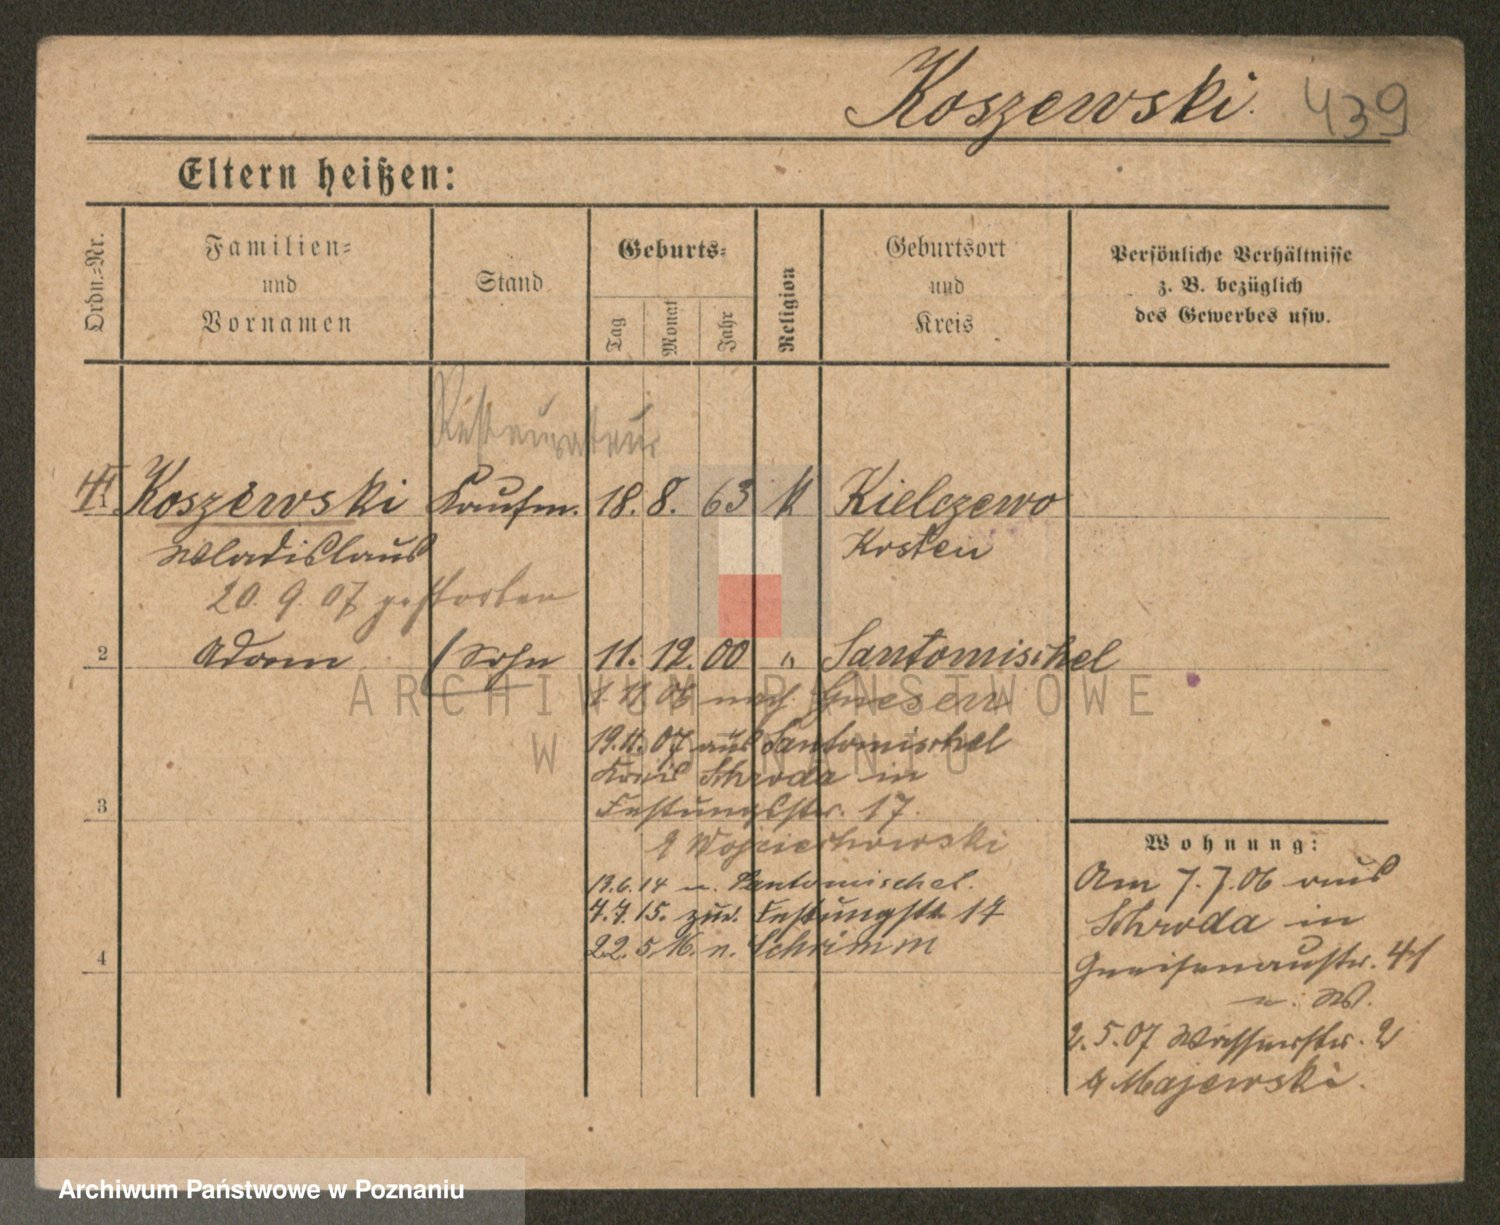 Koszewski. 439
Eltern heißen:
Ordn.=Nr.
Familien=
und
Vornamen
Stand
Geburts=
Tag
Monat
Jahr
Religion
Geburtsort
und
Kreis
Persönliche Verhältnisse
z. B. bezüglich
des Gewerbes usw.
Restaurateur
Koszewski Kaufm. 18. 8. 63 k Kielczewo
Wladislaus Kosten
20. 9. 07 gestorben
2 Adam (Sohn 11. 12. 00 " Santomischel
11. 06 nach Gnesen
19.11.07 aus Santomischel
Kreis Schroda in
3 Festungsstr. 17.
Wojciechowski
13.6.14 n. Santomischel.
7.7.15. zur. Festungstr 17
4 22.5.16. n. Schrimm
Wohnung:
Am 7.7.06 aus
Schroda in
Gneisenaustr. 41
n. W.
2.5.07 Wasserstr. 2
Majewski.
ARCHIWUM PAŃSTWOWE
W POZNANIU
Archiwum Państwowe w Poznaniu